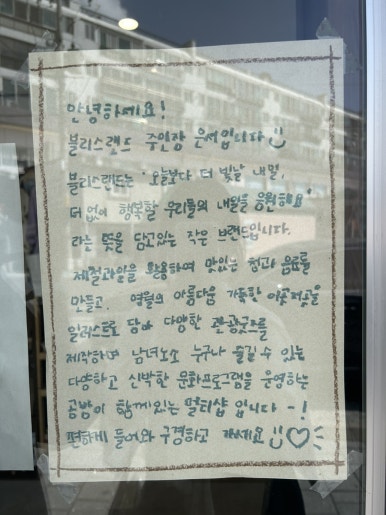 안녕하세요!
블리스랜드 주인장 은서입니다
블리스랜드는 "오늘보다 더 빛날 내일,
더 없이 행복할 우리들의 내일을 응원해요"
라는 뜻을 담고있는 작은 브랜드입니다.
제철과일을 활용하여 맛있는 청과 음료를
만들고, 영월의 아름다움 가득한 이곳저곳을
일러스트로 담아 다양한 관광굿즈를
제작하며 남녀노소 누구나 즐길 수 있는
다양하고 신박한 문화프로그램을 운영하는
공방이 함께있는 멀티샵 입니다~!
편하게 들어와 구경하고 가세요